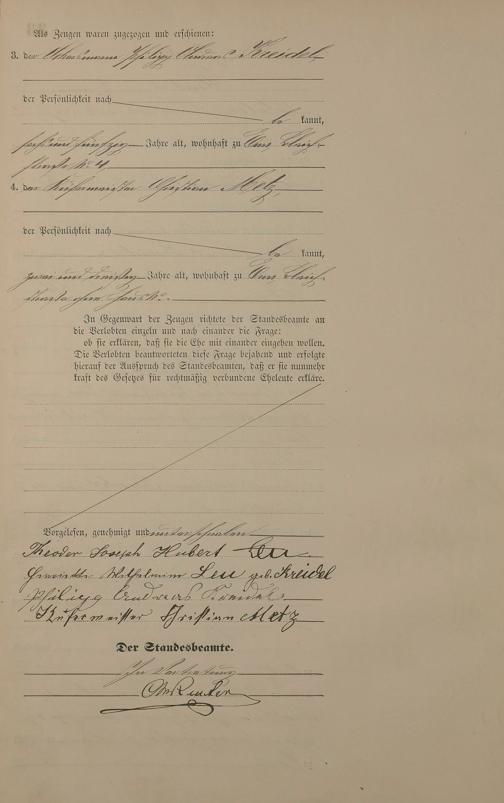 Als Zeugen waren zugezogen und erschienen:
3. der Philipp Kreidel
der Persönlichkeit nach
be kannt,
sechs und fünfzig Jahre alt, wohnhaft zu
straße No 4
4. der Küfermeister Christian Metz
der Persönlichkeit nach
be kannt,
zwei und dreißig Jahre alt, wohnhaft zu
straße ohne Haus No.
In Gegenwart der Zeugen richtete der Standesbeamte an
die Verlobten einzeln und nach einander die Frage:
ob sie erklären, daß sie die Ehe mit einander eingehen wollen.
Die Verlobten beantworteten diese Frage bejahend und erfolgte
hierauf der Ausspruch des Standesbeamten, daß er sie nunmehr
kraft des Gesetzes für rechtmäßig verbundene Eheleute erkläre.
Vorgelesen, genehmigt und unterschrieben
Theodor Joseph Hubert Leu
Henriette Wilhelmine Leu geb. Kreidel
Philipp Andreas Kreidel
Küfermeister Christian Metz
Der Standesbeamte.
In Vertretung